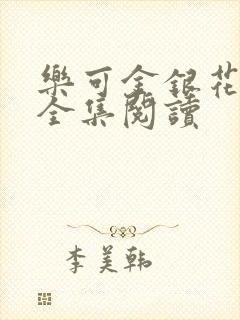 樂可金銀花
全集閱讀
李美韩